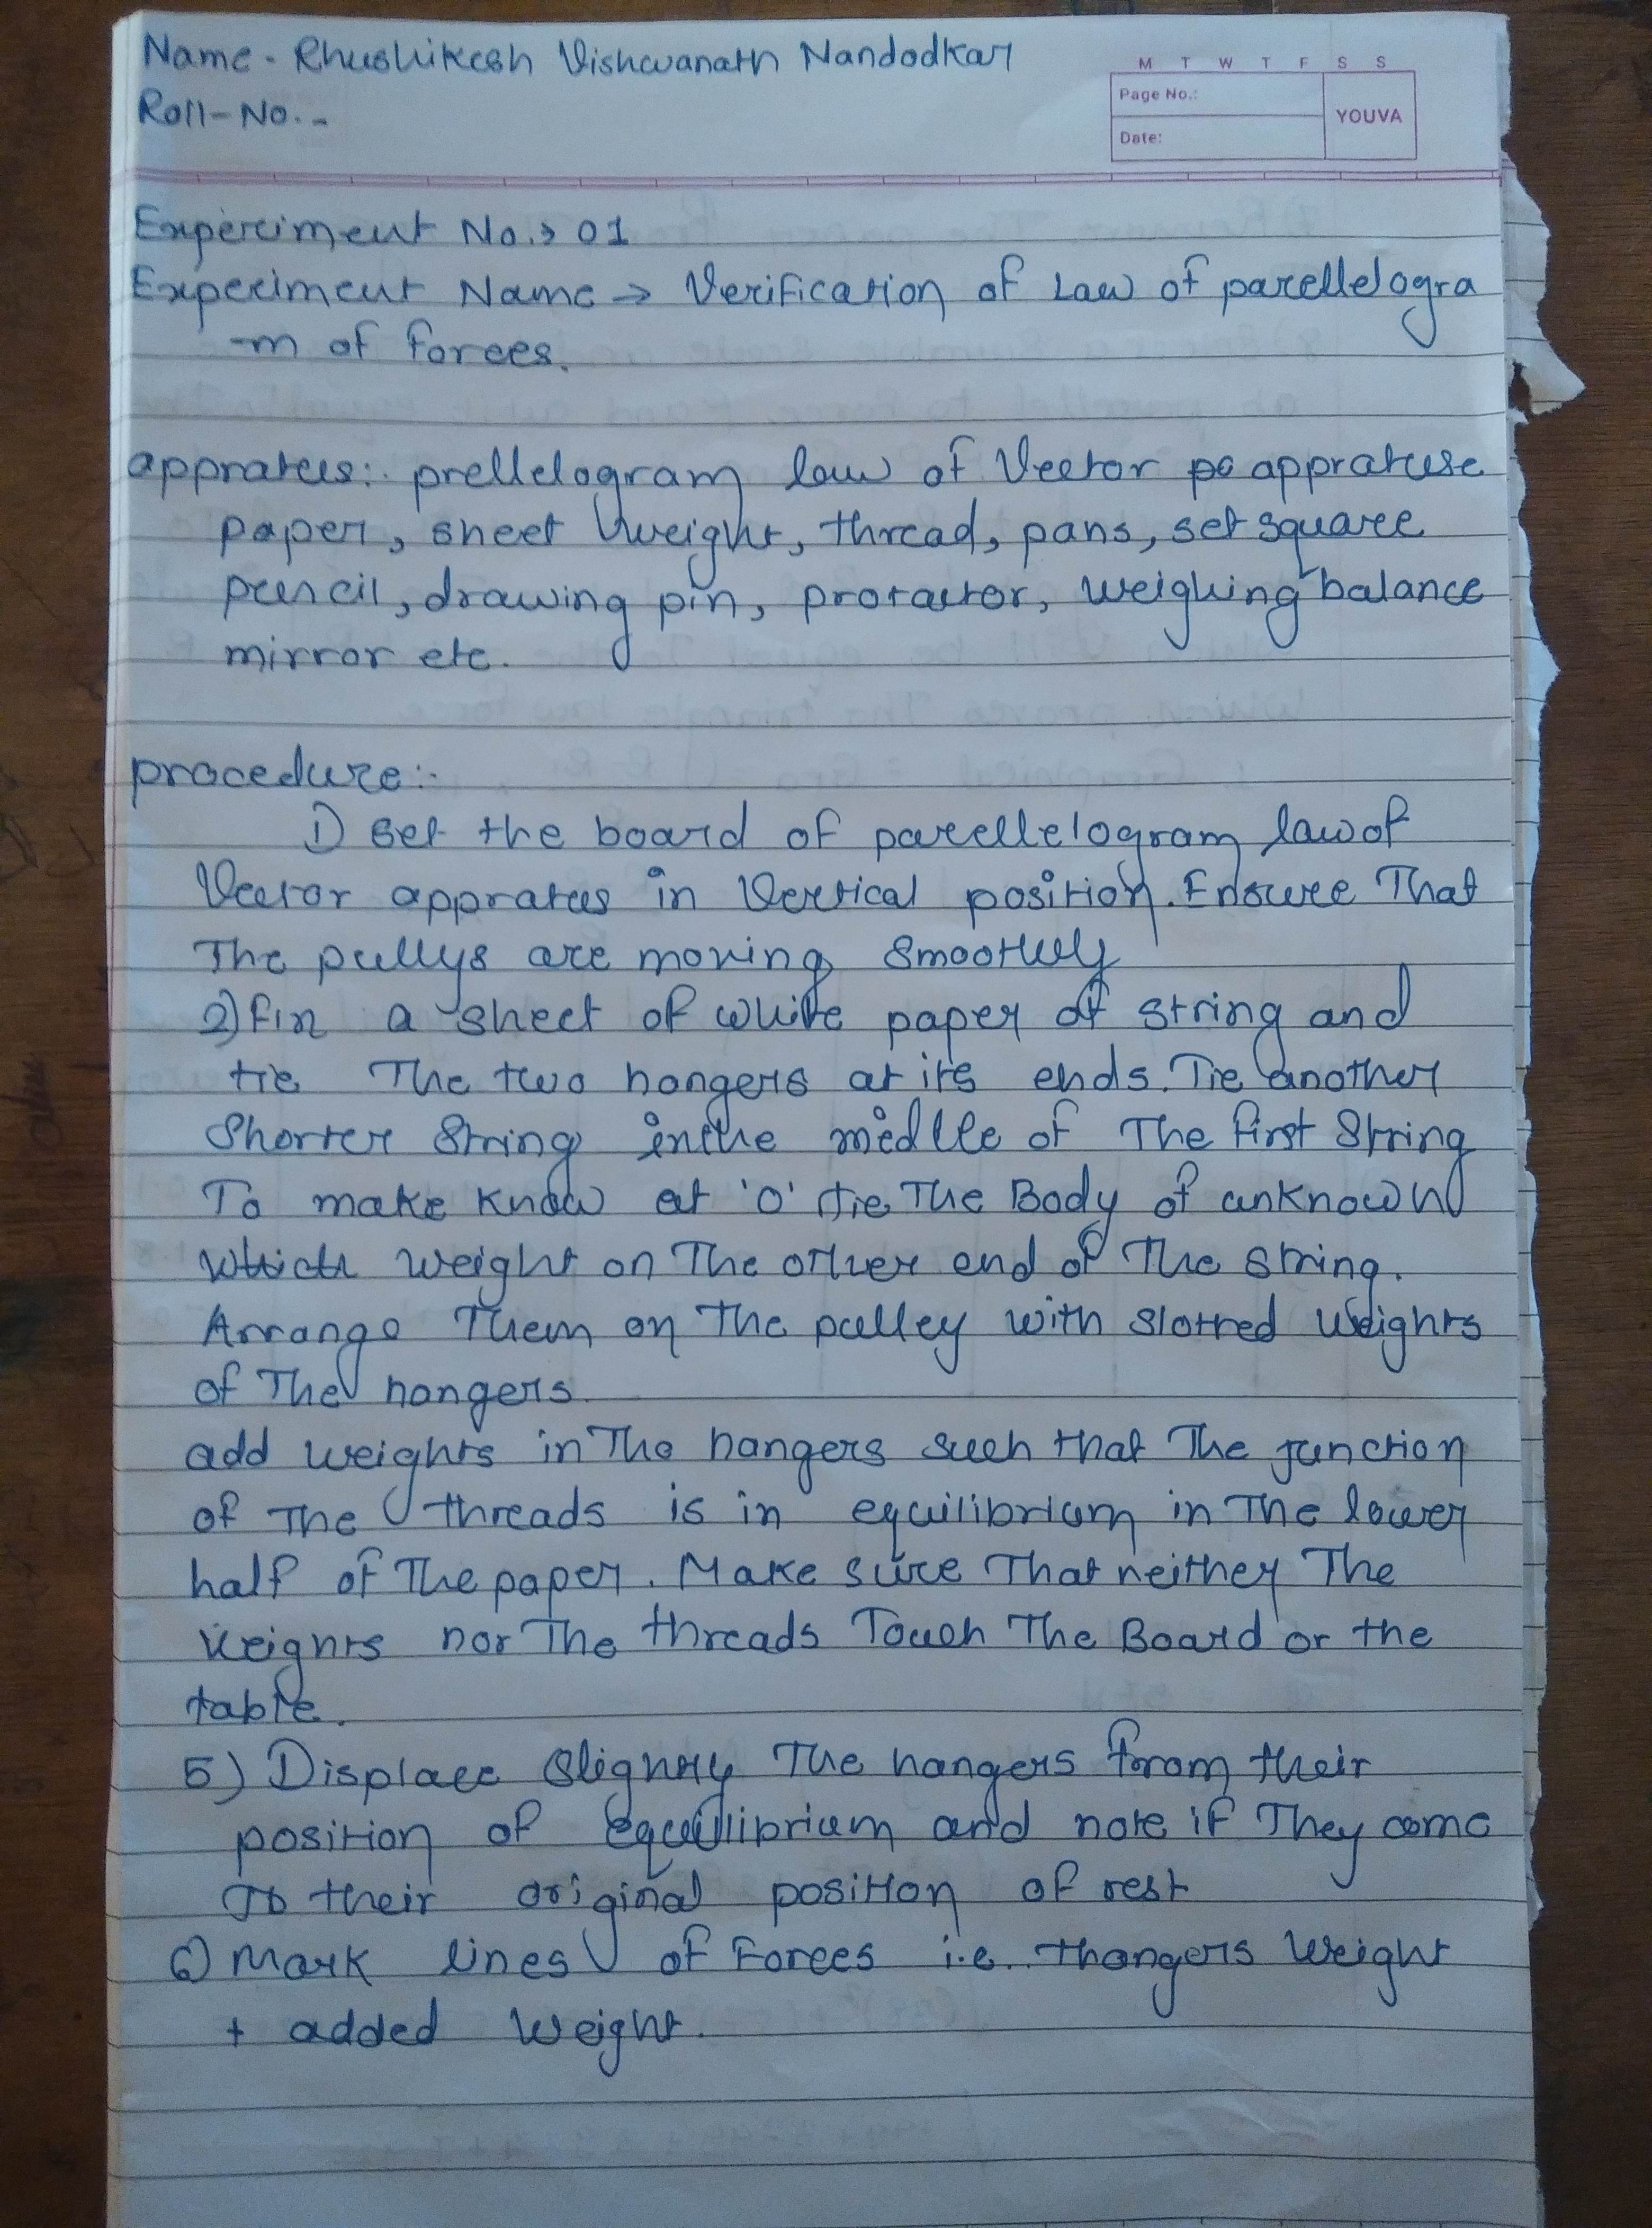 Name - Rhushikesh Vishwanath Nandodkar
Roll-No. -
M T W T F S S
Page No.:
YOUVA
Date:
Experciment No. → 01
Experciment Name → Verification of Law of parellelogra
-m of forces.
appratus:- prellelogram law of Vector appratuse
paper, sheet weight, thread, pans, set square
pencil, drawing pin, protactor, weighing balance
mirror etc.
procedure:-
1) Set the board of parellelogram law of
Vector appratus in Vertical position. Ensure That
The pullys are moving smoothly
2) fix a sheet of white paper of string and
tie The two hangers at its ends. Tie another
Shorter String in the middle of The first String
To make know at 'O' tie The Body of unknown
which weight on The other end of The string.
Arrange Them on The pulley with slotted weights
of The hangers.
add weights in The hangers such that The junction
of The threads is in equilibrium in The lower
half of The paper. Make sure That neither The
weights nor The threads Touch The Board or the
table.
5) Displace slightly The hangers foram their
position of equilibrium and note if They come
To their original position of rest
6) Mark lines of Forces i.e. thangers weight
+ added weight.